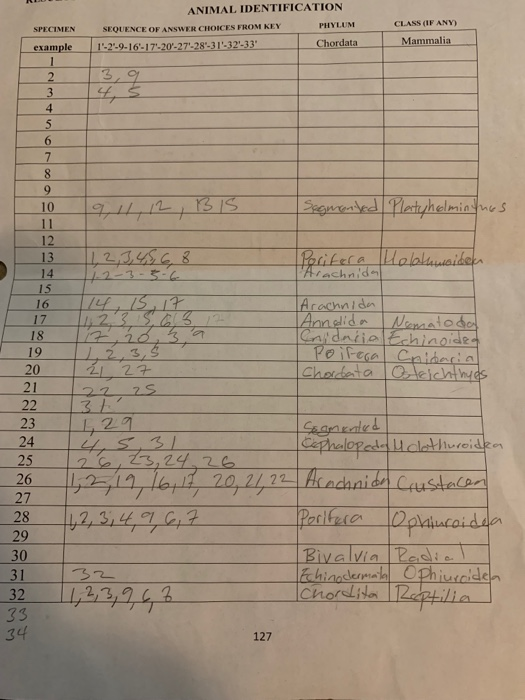 ANIMAL IDENTIFICATION
SPECIMEN SEQUENCE OF ANSWER CHOICES FROM KEY PHYLUM CLASS (IF ANY)
example 1'-2'-9-16'-17'-20'-27'-28'-31'-32'-33' Chordata Mammalia
1
2 3, 9
3 4, 5
4
5
6
7
8
9
10 9, 11, 12, 13 15 Segmented Platyhelminthes
11
12
13 1, 2, 3, 4, 5, 6, 8 Porifera
14 1-2-3-5-6 Arachnida
15
16 14, 15, 17 Arachnida
17 1, 2, 3, 5, 6, 8 Annelida Nematoda
18 17, 20, 3, 9 Cnidaria Echinoidea
19 1, 2, 3, 5 Poifera Cnidaria
20 21, 27 Chordata Osteichthyes
21 22, 25
22 31
23 1, 29 Segmented
24 4, 5, 31 Cephalopeda Holothuroidea
25 26, 23, 24, 26
26 1, 2, 19, 16, 17, 20, 21, 22 Arachnida Crustacea
27
28 1, 2, 3, 4, 9, 6, 7 Porifera Ophiuroidea
29
30 Bivalvia Radial
31 32 Echinodermata Ophiuroidea
32 1, 2, 3, 9, 6, 8 Chordita Reptilia
33
34
127